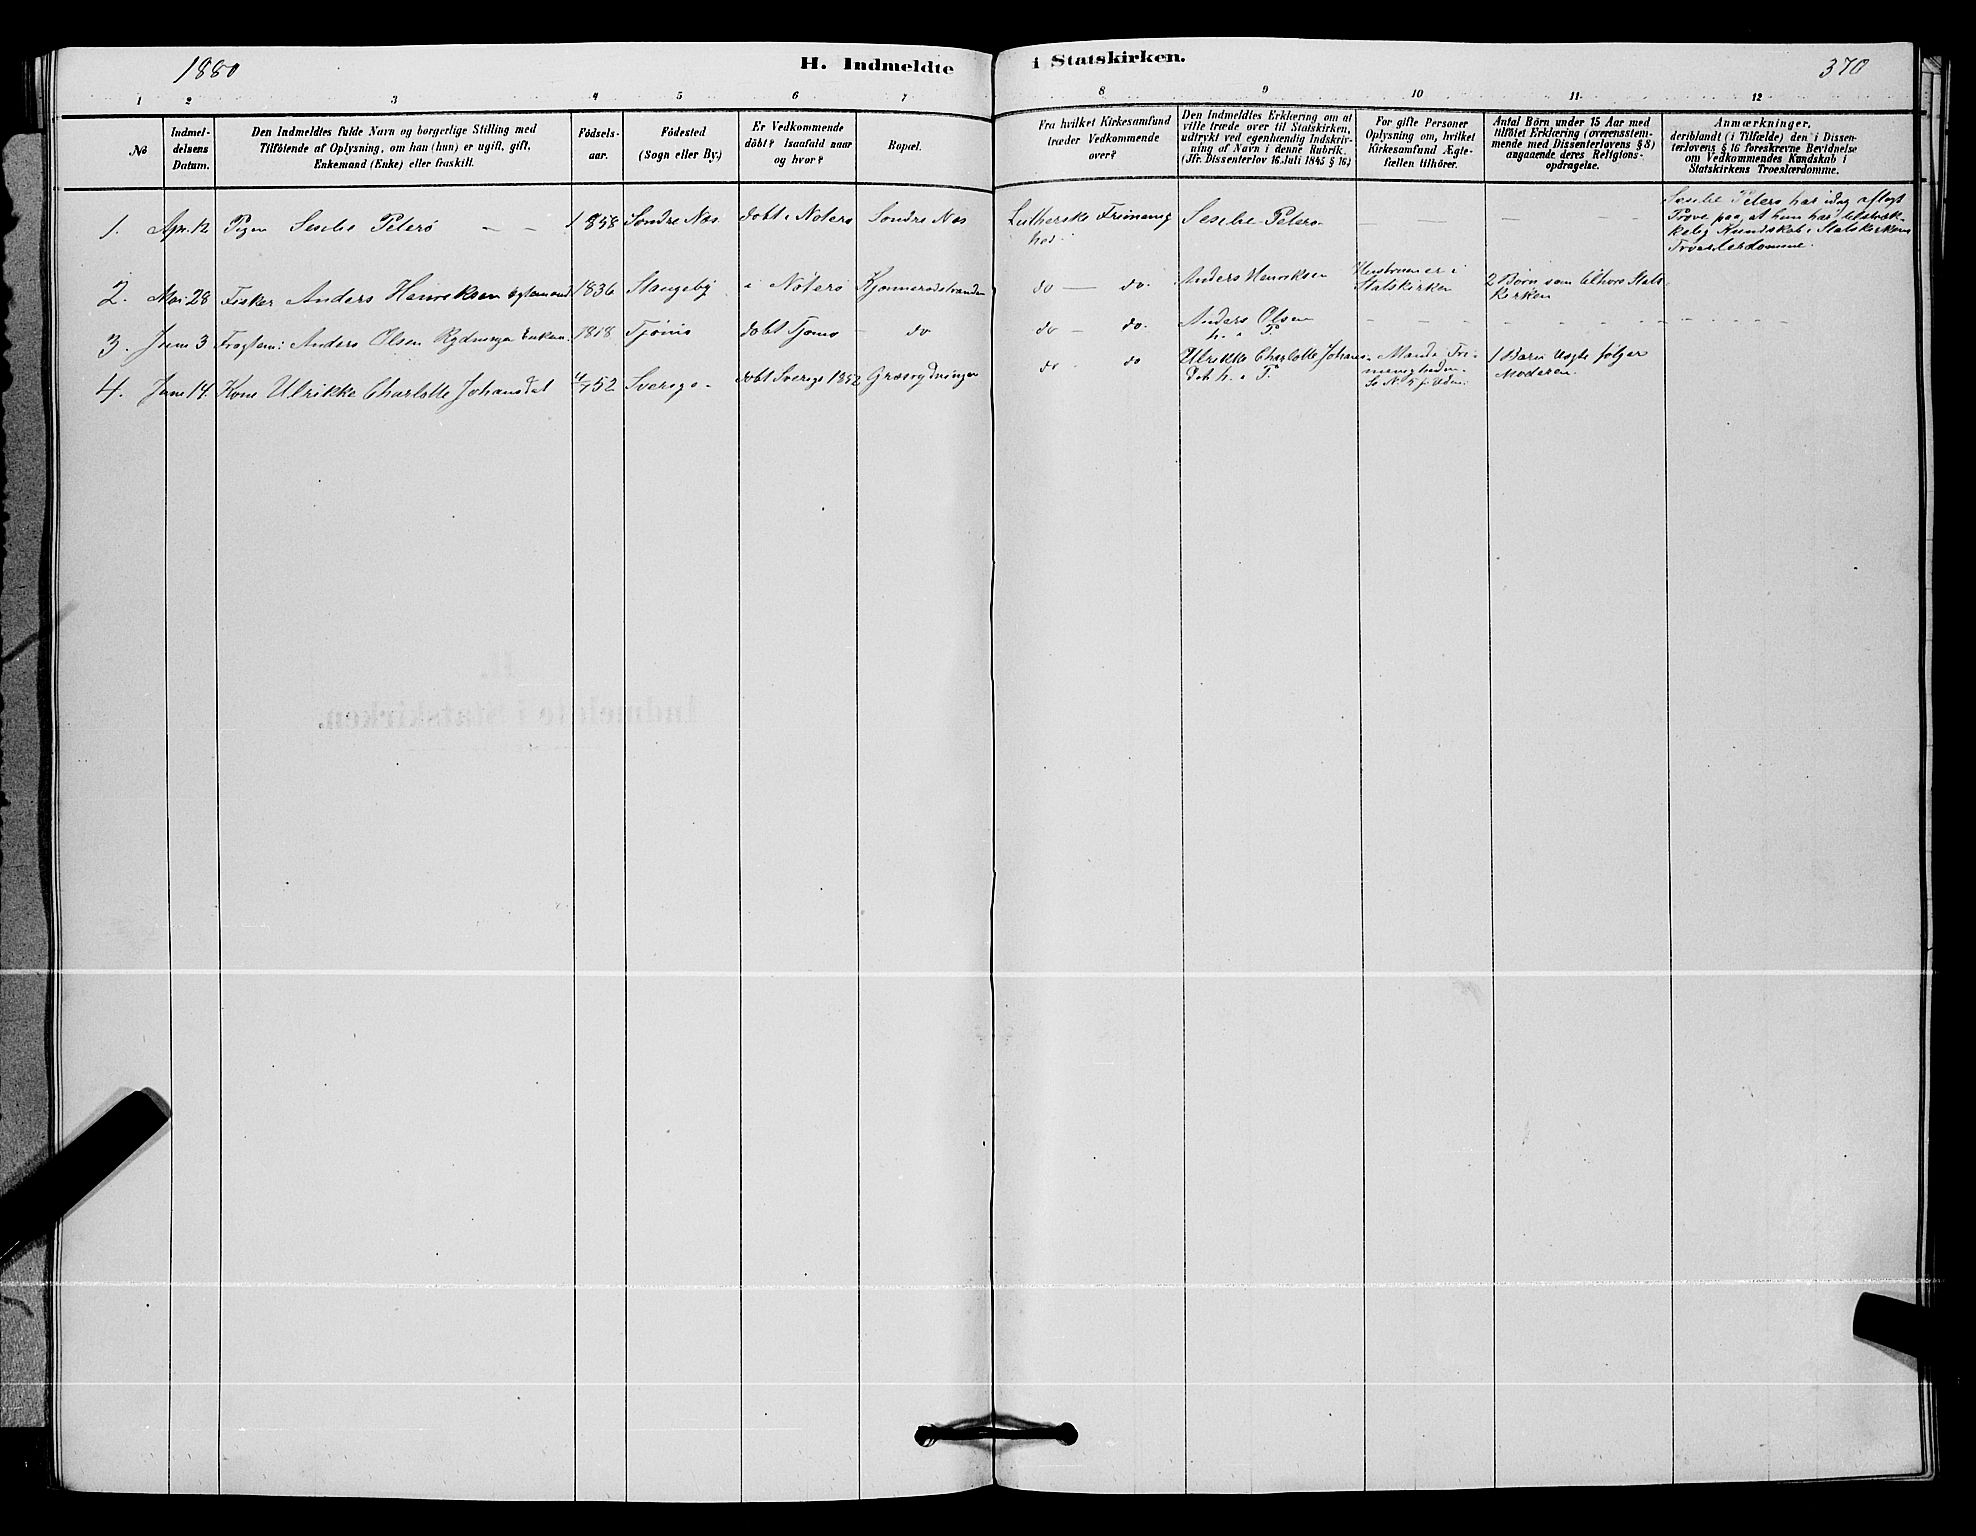 1880
H. Indmeldte i Statskirken.
370
1 2 3 4 5 6 7 8 9 10 11 12
No
Indmel-
delsens
Datum.
Den Indmeldtes fulde Navn og borgerlige Stilling med
Tilföiende af Oplysning, om han (hun) er ugift, gift,
Enkemand (Enke) eller fraskilt.
Födsels-
aar.
Födested
(Sogn eller By.)
Er Vedkommende
döbt? Isaafald naar
og hvor?
Bopæl.
Fra hvilket Kirkesamfund
træder Vedkommende
over?
Den Indmeldtes Erklæring om at
ville træde over til Statskirken,
udtrykt ved egenhændig Indskriv-
ning af Navn i denne Rubrik.
(Jfr. Dissenterlov 16 Juli 1845 § 16.)
For gifte Personer
Oplysning om, hvilket
Kirkesamfund Ægte-
fællen tilhörer.
Antal Börn under 15 Aar med
tilföiet Erklæring (overensstem-
mende med Dissenterlovens § 8)
angaaende deres Religions-
opdragelse.
Anmærkninger,
deriblandt (i Tilfælde) den i Dissen-
terlovens § 16 foreskrevne Bevidnelse
om Vedkommendes Kundskab i
Statskirkens Troeslærdomme.
1. Apr. 12 Pigen Sesebe Peterö — — 1858 Söndre Næs döbt i Nöterö Söndre Næs
Lutherske Frimenig
hed.
Sesebe Peterö — — —
Sesebe Peterö har idag aflagt
Pröve paa, at hun har tilstræk-
kelig Kundskab i Statskirkens
Troeslærdomme.
2. Mai 28 Fisker Anders Henriksen Egtemand 1836 Stangeby i Nöterö Kjönnerödstranden
do — do.
Anders Henriksen
Hustruen er i
Statskirken
2 Börn som tilhöre Stats-
kirken
3. Juni 3 Anders Olsen Rydningen Enkem. 1818 Tjömö döbt Tjömö — do
do — do.
Anders Olsen
4. Juni 14. Kone Ulrikke Charlotte Johansdat 4/7 52 Sverige - döbt Sverige 1852 Græsrydningen
do . do
Ulrikke Charlotte Johans-
dat. h. i P.
Manden i Fri-
menigheden.
Se N. 5 f. Uden.
1 Barn Uegte fölger
Moderen
II.
Indmeldte i Statskirken.